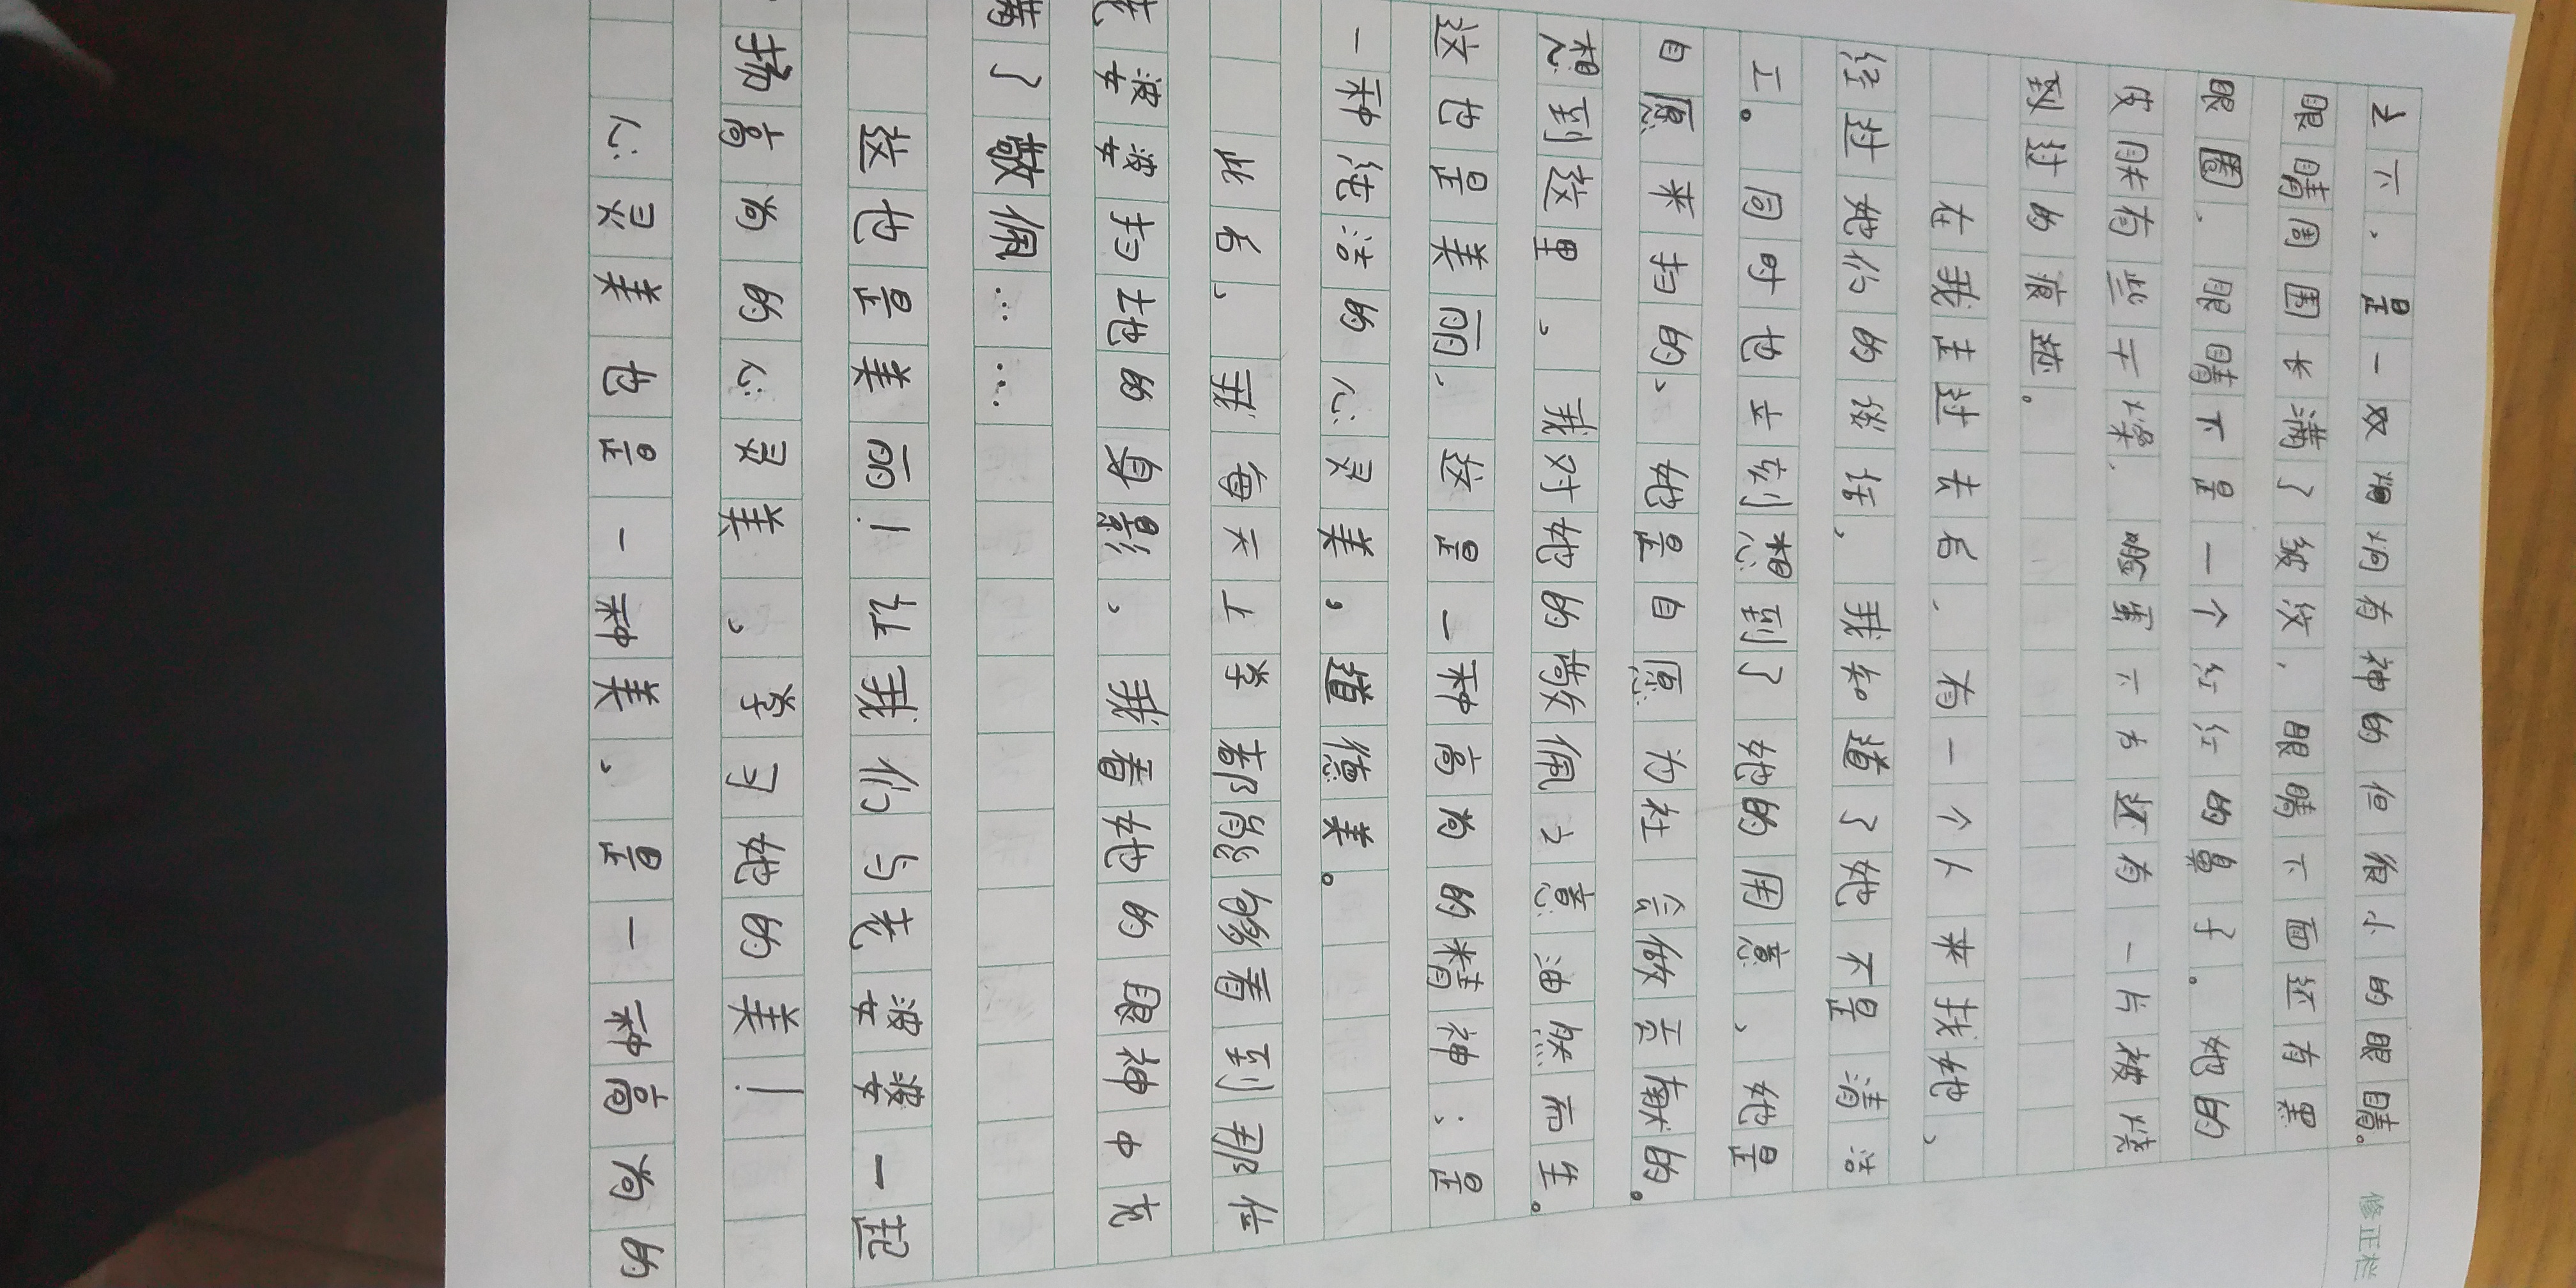 之下，是一双炯炯有神的但很小的眼睛。
眼睛周围长满了皱纹，眼睛下面还有黑
眼圈，眼睛下是一个红红的鼻子。她的
皮肤有些干燥，嘴唇下方还有一片被烧
到过的痕迹。
在我走过去后，有一个人来找她、
经过她们的谈话，我知道了她不是清洁
工。同时也立刻想到了她的用意、她是
自愿来扫的、她是自愿为社会做贡献的。
想到这里、我对她的敬佩之意油然而生。
这也是美丽，这是一种高尚的精神：是
一种纯洁的心灵美，道德美。
此后、我每天上学都能够看到那位
老婆婆扫地的身影、我看她的眼神中充
满了敬佩……
这也是美丽！让我们与老婆婆一起
，扬高尚的心灵美、学习她的美！
心灵美也是一种美、是一种高尚的